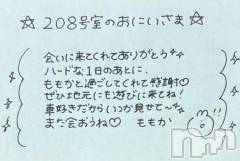 ☆208号室のおにいさま☆
会いに来てくれてありがとう
ハードな1日のあとに、
ももかと過ごしてくれて感謝♡
ぜひ地元にも遊びに来てね！
車好きだからいつか見せて〜
また会おうね♡ ももか